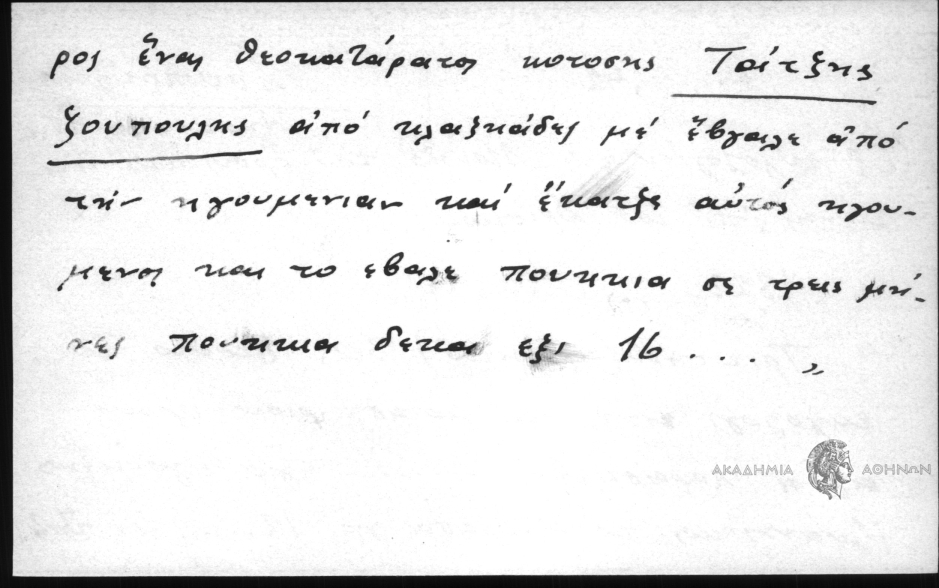 ρος ἕνας θεοκατάρατος κοτοσης Τσίτζης
ζουπουλης ἀπό κλαξκάδες μέ ἔβγαλε ἀπό
τήν ηγουμενιαν καί ἔκατζε αὐτός ηγου-
μενος και το εβαλε πουκκια σε τρεις μή-
νες πουκκια δεκα εξι 16 . . . . „
ΑΚΑΔΗΜΙΑ ΑΘΗΝΩΝ